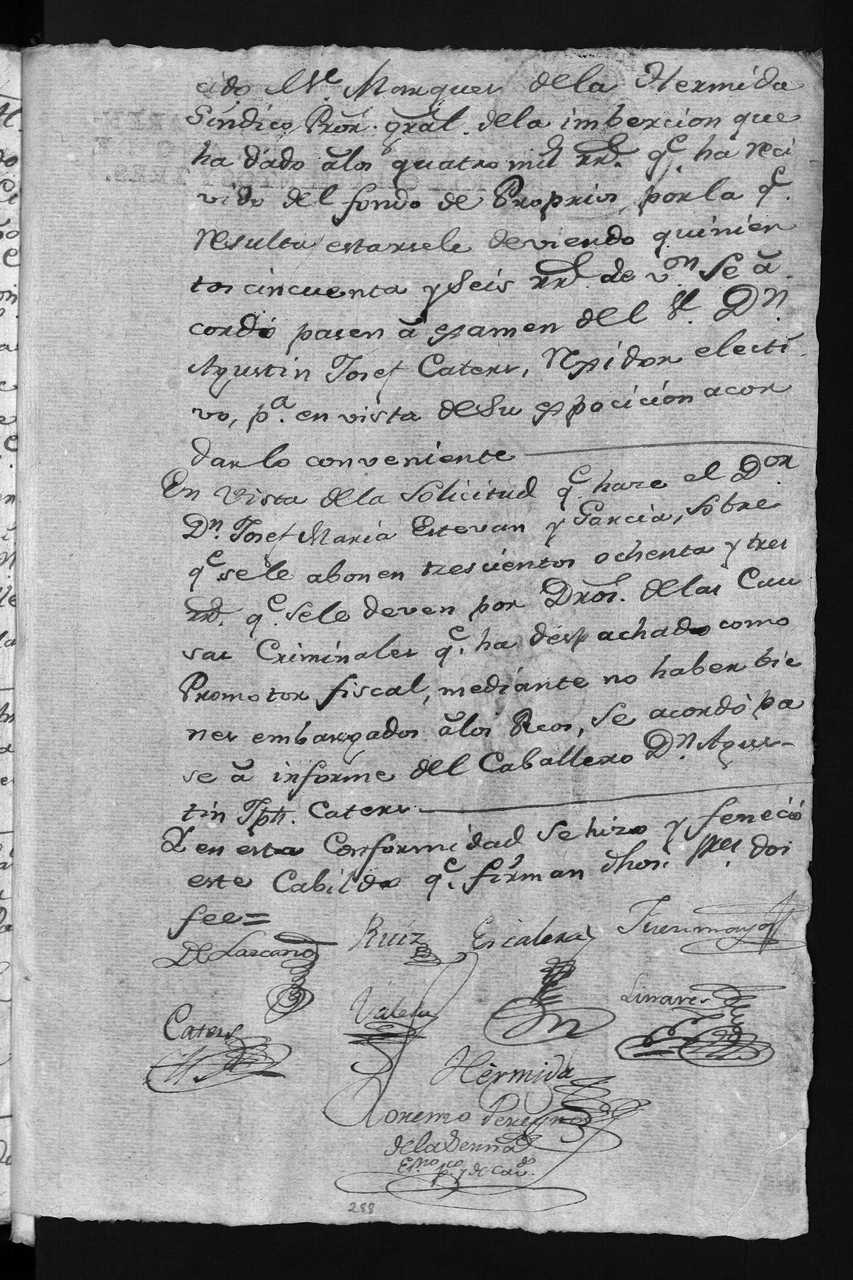 cido el Sr. Marques dela Hermida
Sindico Pror. gral. dela imbercion que
ha dado a los quatro mil rrs. qe. ha reci
vido del fondo de Proprios, por la qe.
resulta estarsele deviendo quinien
tos cincuenta y seis rrs. de von. Se a
cordó pasen a examen del Sr. Dn.
Agustin Josef Caters, Rexidor electi
vo, pa. en vista de su exposición acor
dar lo conveniente
En vista dela solicitud qe. hace el Dor
Dn. Josef Maria Estevan y Garcia, sobre
qe. sele abonen trescientos ochenta y tres
rrs. qe. sele deven por Dros. de las Cau
sas Criminales qe. ha despachado como
Promotor fiscal, mediante no haber bie
nes embargados a los Reos, se acordó pa
se a informe del Caballero Dn. Agus-
tin Jph. Caters.
Y en esta Conformidad se hizo y feneció
este Cabildo qe. firman dhos. sres. doi
fee=
De Lazcano Ruiz Escalera
Caters Valera Linares
Hermida
Lorenzo Pereyra
de la Serna
Esno. pco. y de Cavdo.
288